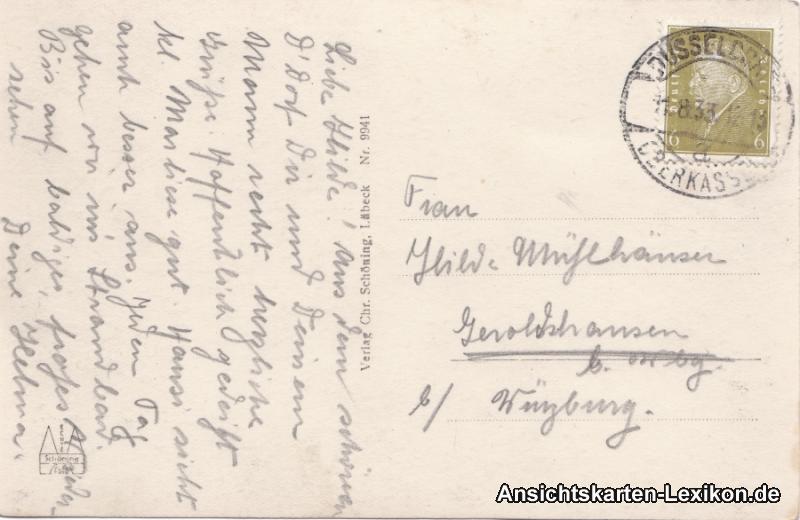 Liebe Hilde! Aus dem schönen
D'dorf Dir und Deinem
Mann recht herzliche
Grüße. Hoffentlich gedeiht
kl. Marliese gut. Hansi sieht
auch besser aus. Jeden Tag
gehen wir ins Strandbad.
Bis auf baldiges, frohes Wieder-
sehen
Deine Helma.
Verlag Chr. Schöning, Lübeck Nr. 9941
DÜSSELDORF
OBERKASSEL
a
6 6
Frau
Hilde Mühlhäuser
Geroldshausen
b/ Würzburg.
Schöning
Ansichtskarten-Lexikon.de